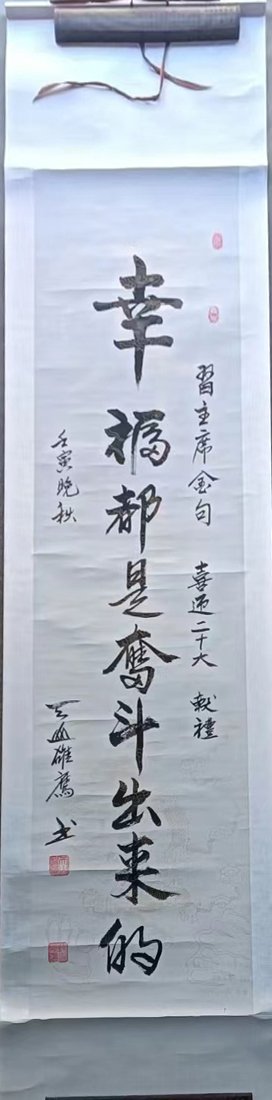 習主席金句 喜迎二十大 献禮
幸福都是奮斗出来的
壬寅晚秋
天山雄鷹 书